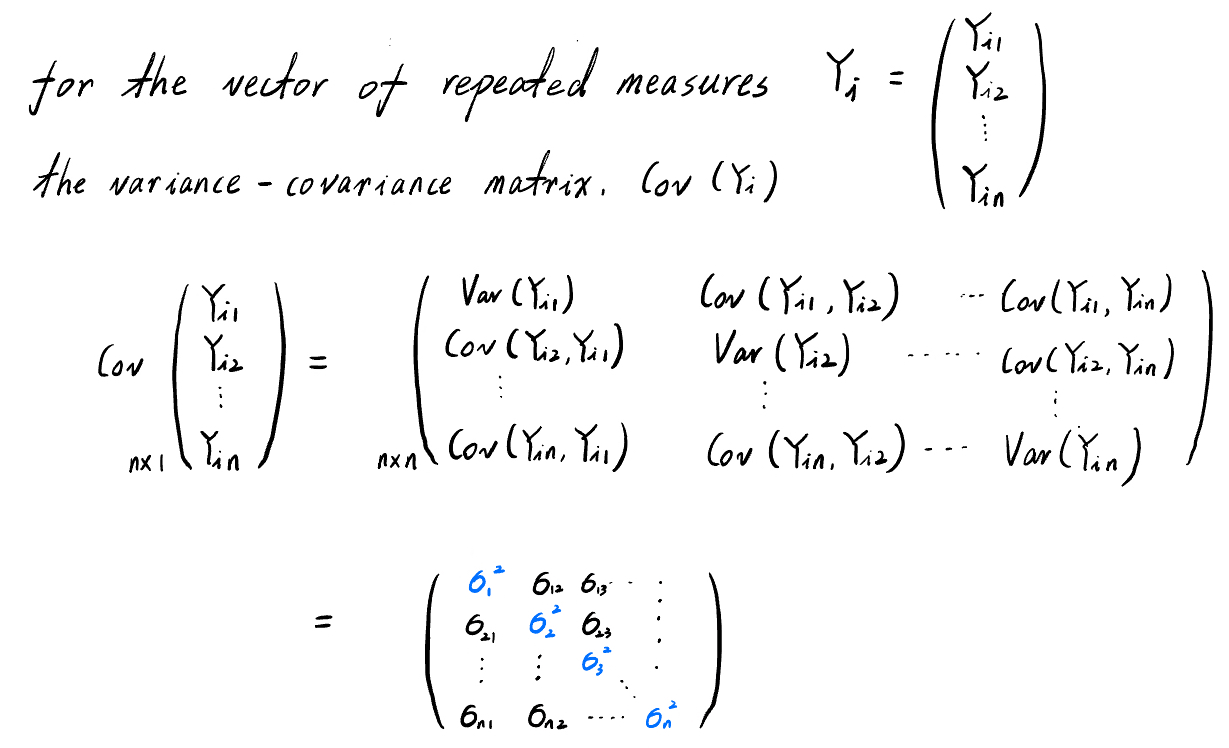 for the vector of repeated measures Y_i = ( Y_i1 Y_i2 ⋮ Y_in )
the variance - covariance matrix. Cov (Y_i)
Cov n×1 ( Y_i1 Y_i2 ⋮ Y_in ) = n×n
( Var (Y_i1) Cov (Y_i1, Y_i2) ... Cov(Y_i1, Y_in)
Cov (Y_i2, Y_i1) Var (Y_i2) ..... Cov(Y_i2, Y_in)
⋮ ⋮ ⋮
Cov (Y_in, Y_i1) Cov (Y_in, Y_i2) ... Var (Y_in) )
=
( σ_1^2 σ_12 σ_13 ... ⋮
σ_21 σ_2^2 σ_23 ⋮
⋮ ⋮ σ_3^2 ⋱ ⋮
σ_n1 σ_n2 .... σ_n^2 )